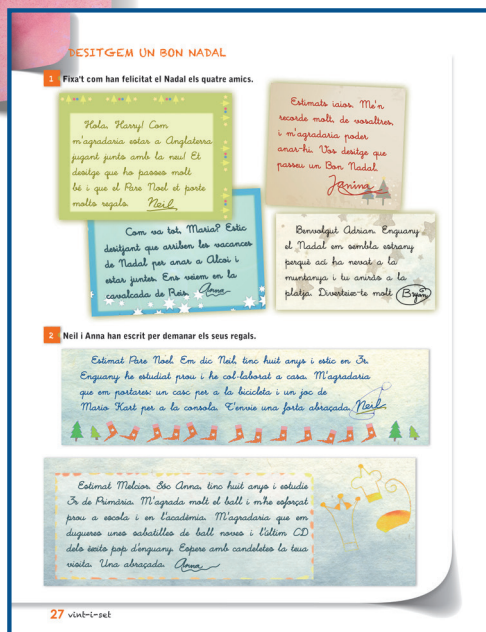 DESITGEM UN BON NADAL
1 Fixa't com han felicitat el Nadal els quatre amics.
Hola, Harry! Com
m'agradaria estar a Anglaterra
jugant junts amb la neu! Et
desitge que ho passes molt
bé i que el Pare Noel et porte
molts regals. Neil
Estimats iaios. Me'n
recorde molt, de vosaltres,
i m'agradaria poder
anar-hi. Vos desitge que
passeu un Bon Nadal.
Janina
Com va tot, Maria? Estic
desitjant que arriben les vacances
de Nadal per anar a Alcoi i
estar juntes. Ens veiem en la
cavalcada de Reis. Anna
Benvolgut Adrian. Enguany
el Nadal em sembla estrany
perquè ací ha nevat a la
muntanya i tu aniràs a la
platja. Diverteix-te molt. Bryan
2 Neil i Anna han escrit per demanar els seus regals.
Estimat Pare Noel. Em dic Neil, tinc huit anys i estic en 3r.
Enguany he estudiat prou i he col·laborat a casa. M'agradaria
que em portares: un casc per a la bicicleta i un joc de
Mario Kart per a la consola. T'envie una forta abraçada. Neil
Estimat Melcior. Sóc Anna, tinc huit anys i estudie
3r de Primària. M'agrada molt el ball i m'he esforçat
prou a escola i en l'acadèmia. M'agradaria que em
dugueres unes sabatilles de ball noves i l'últim CD
dels èxits pop d'enguany. Espere amb candeletes la teua
visita. Una abraçada. Anna
27 vint-i-set